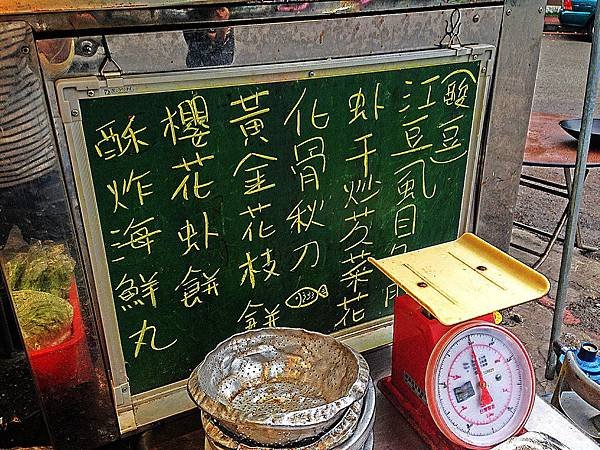 (酸豆)
江豆虱目魚
虾干炒芥菜花
化骨秋刀
黃金花枝餅
櫻花虾餅
酥炸海鮮丸